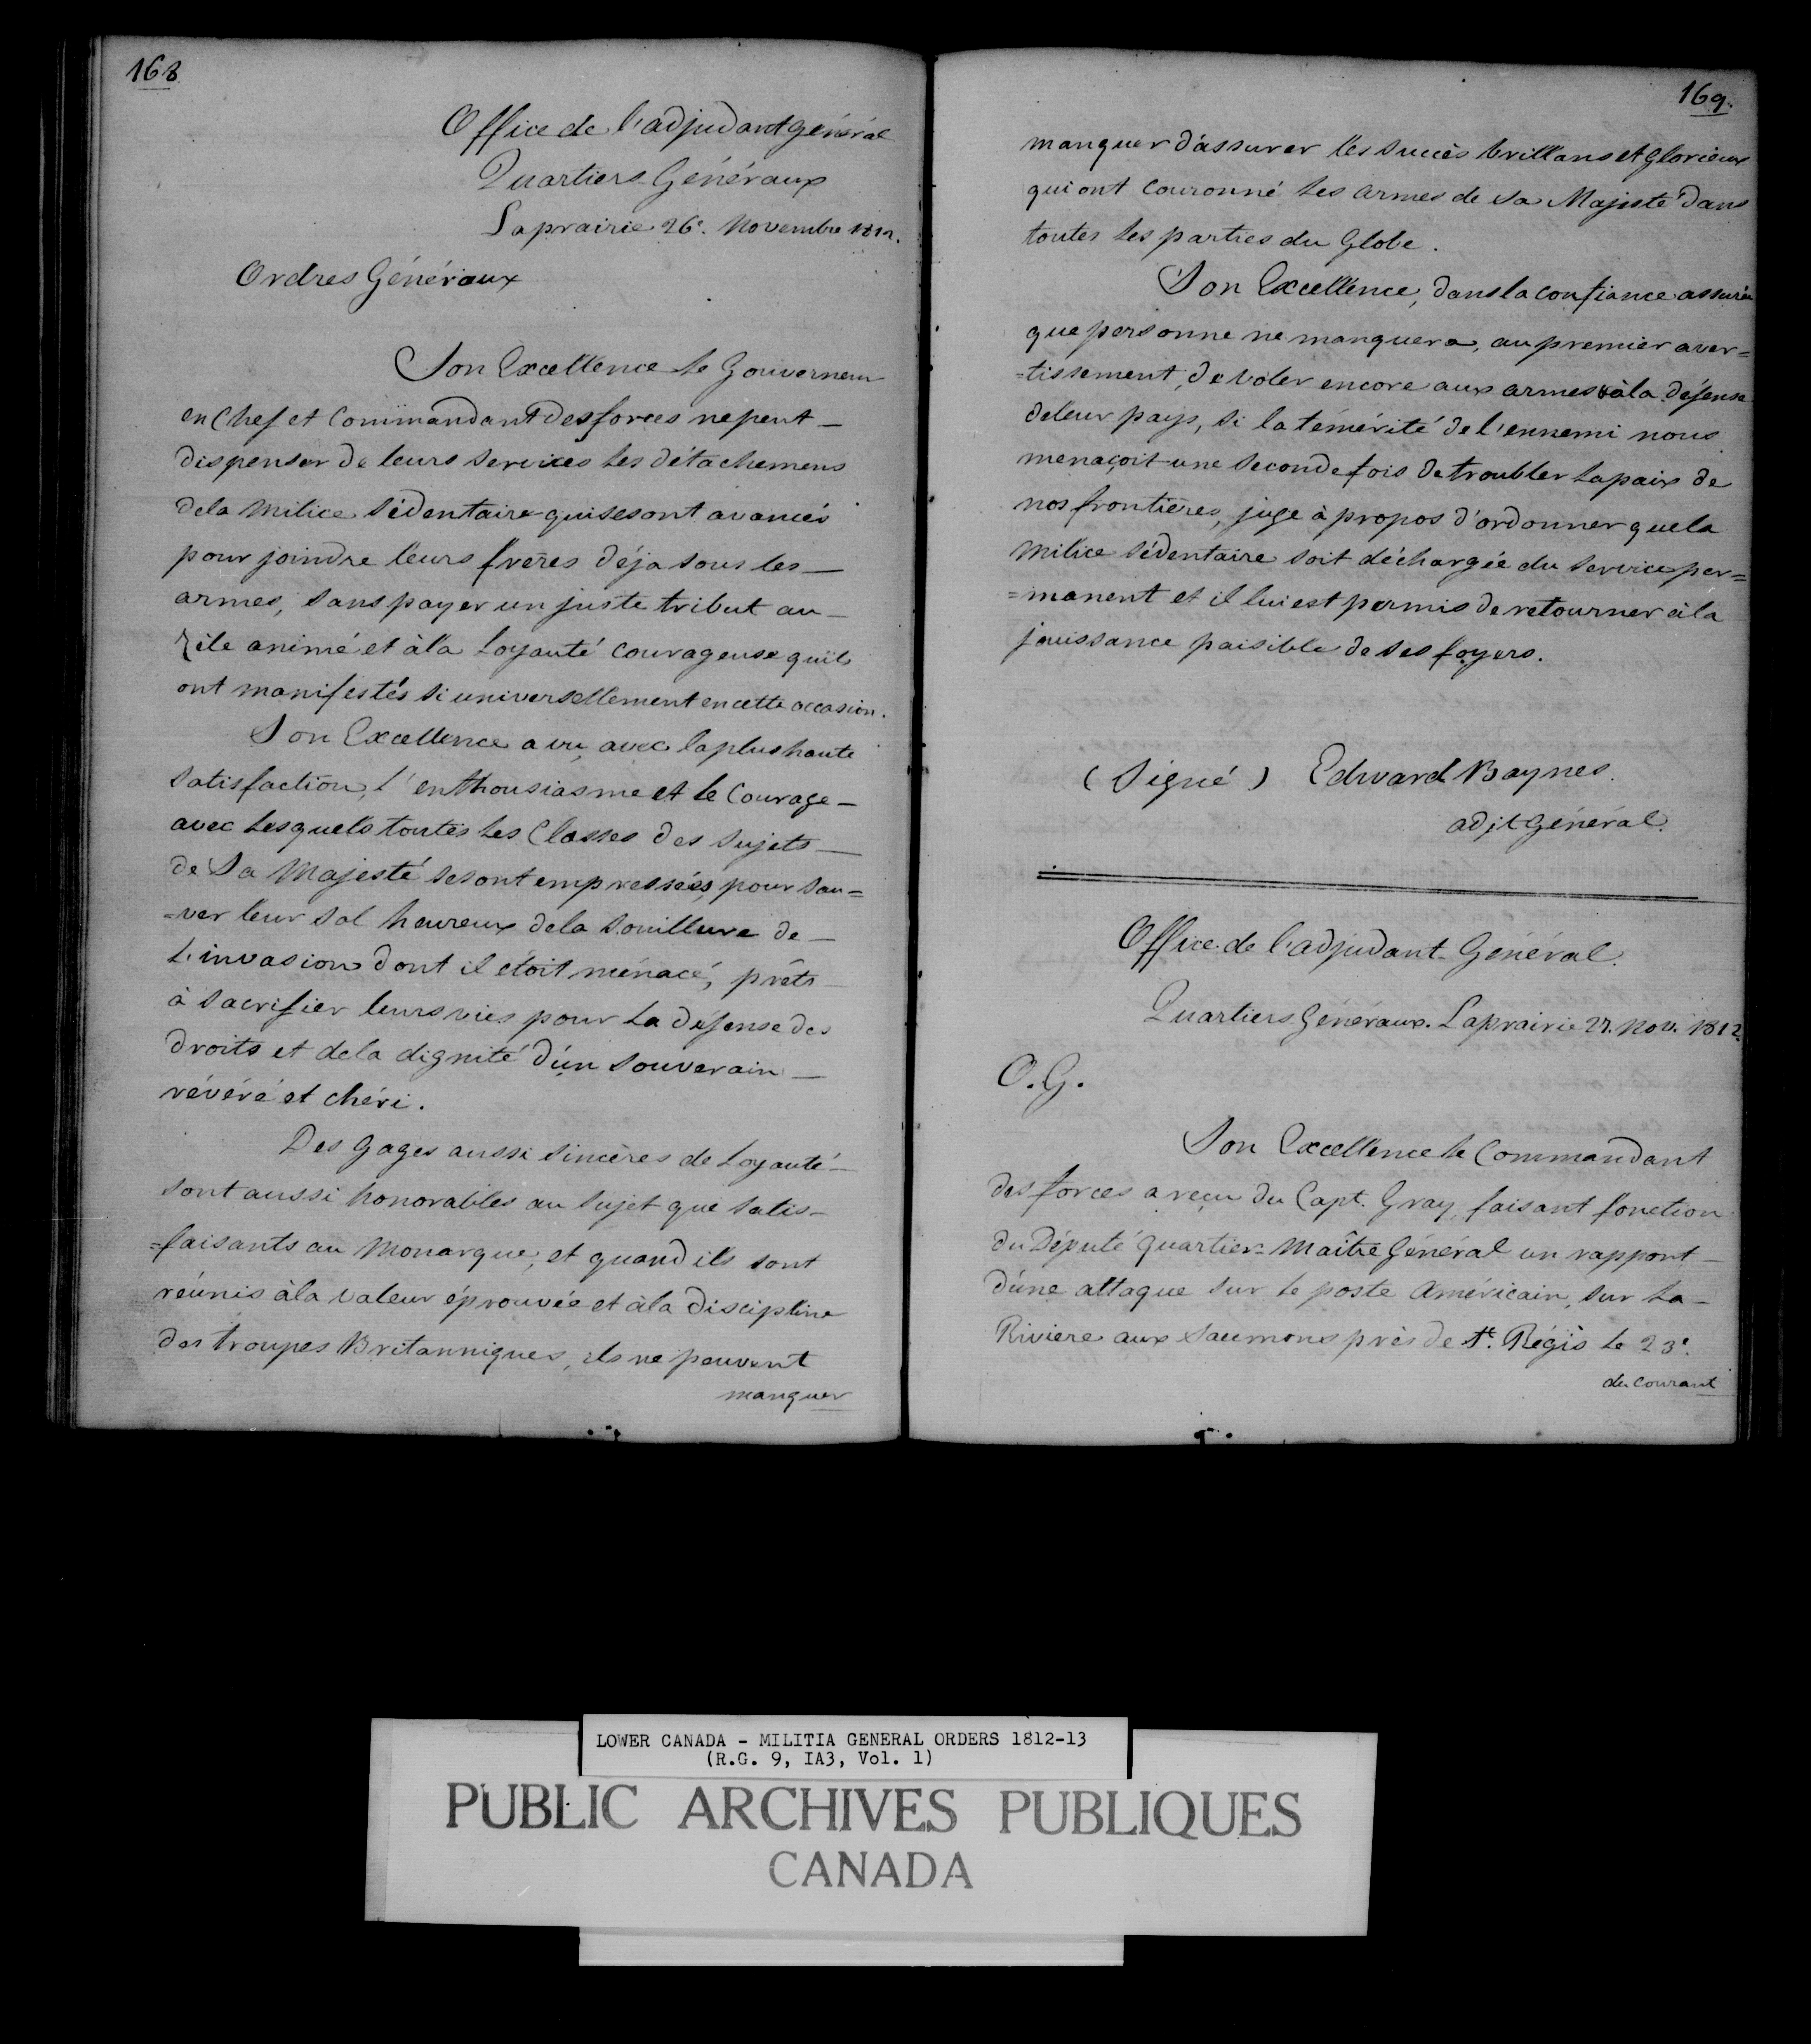 168
Office de l'adjudant général
Quartiers Généraux
Laprairie 26e. Novembre 1812.
Ordres Généraux
Son Excellence le Gouverneur
en Chef et Commandant des forces ne peut —
dispenser de leurs services les détachemens
de la Milice Sédentaire qui se sont avancés
pour joindre leurs frères déja sous les —
armes, sans payer un juste tribut au —
zèle animé et à la Loyauté courageuse qu'ils
ont manifestés si universellement en cette occasion.
Son Excellence a vu, avec la plus haute
satisfaction, l'enthousiasme et le Courage —
avec lesquels toutes les Classes des Sujets —
de Sa Majesté se sont empressées, pour sau=
=ver leur sol heureux de la souillure de —
L'invasion dont il étoit ménacé, prêts —
à sacrifier leurs vies pour la défense des
droits et de la dignité d'un souverain —
révéré et chéri.
Des gages aussi sincères de Loyauté —
sont aussi honorables au sujet que satis-
=faisants au Monarque, et quand ils sont
réunis à la valeur éprouvée et à la discipline
des troupes Britanniques, ils ne peuvent
manquer
169.
manquer d'assurer les succès brillans et glorieux
qui ont couronné les armes de sa Majesté dans
toutes les parties du Globe.
Son Excellence, dans la confiance assurée
que personne ne manquera, au premier aver=
=tissement, de voler encore aux armes à la défense
de leur pays, si la témérité de l'ennemi nous
menaçoit une seconde fois de troubler la paix de
nos frontières, juge à propos d'ordonner que la
Milice Sédentaire soit déchargée du service per=
=manent et il lui est permis de retourner à la
jouissance paisible de ses foyers.
(Signé) Edward Baynes.
adjt Général.
Office de l'adjudant Général.
Quartiers Généraux. Laprairie 27. Nov. 1812.
O.G.
Son Excellence le Commandant
des forces a reçu du Capt. Gray, faisant fonction
du Député Quartier-Maître Général un rapport —
d'une attaque sur le poste Américain, sur la —
Riviere aux Saumons près de St. Régis le 23e.
du courant
LOWER CANADA - MILITIA GENERAL ORDERS 1812-13
(R.G. 9, IA3, Vol. 1)
PUBLIC ARCHIVES PUBLIQUES
CANADA